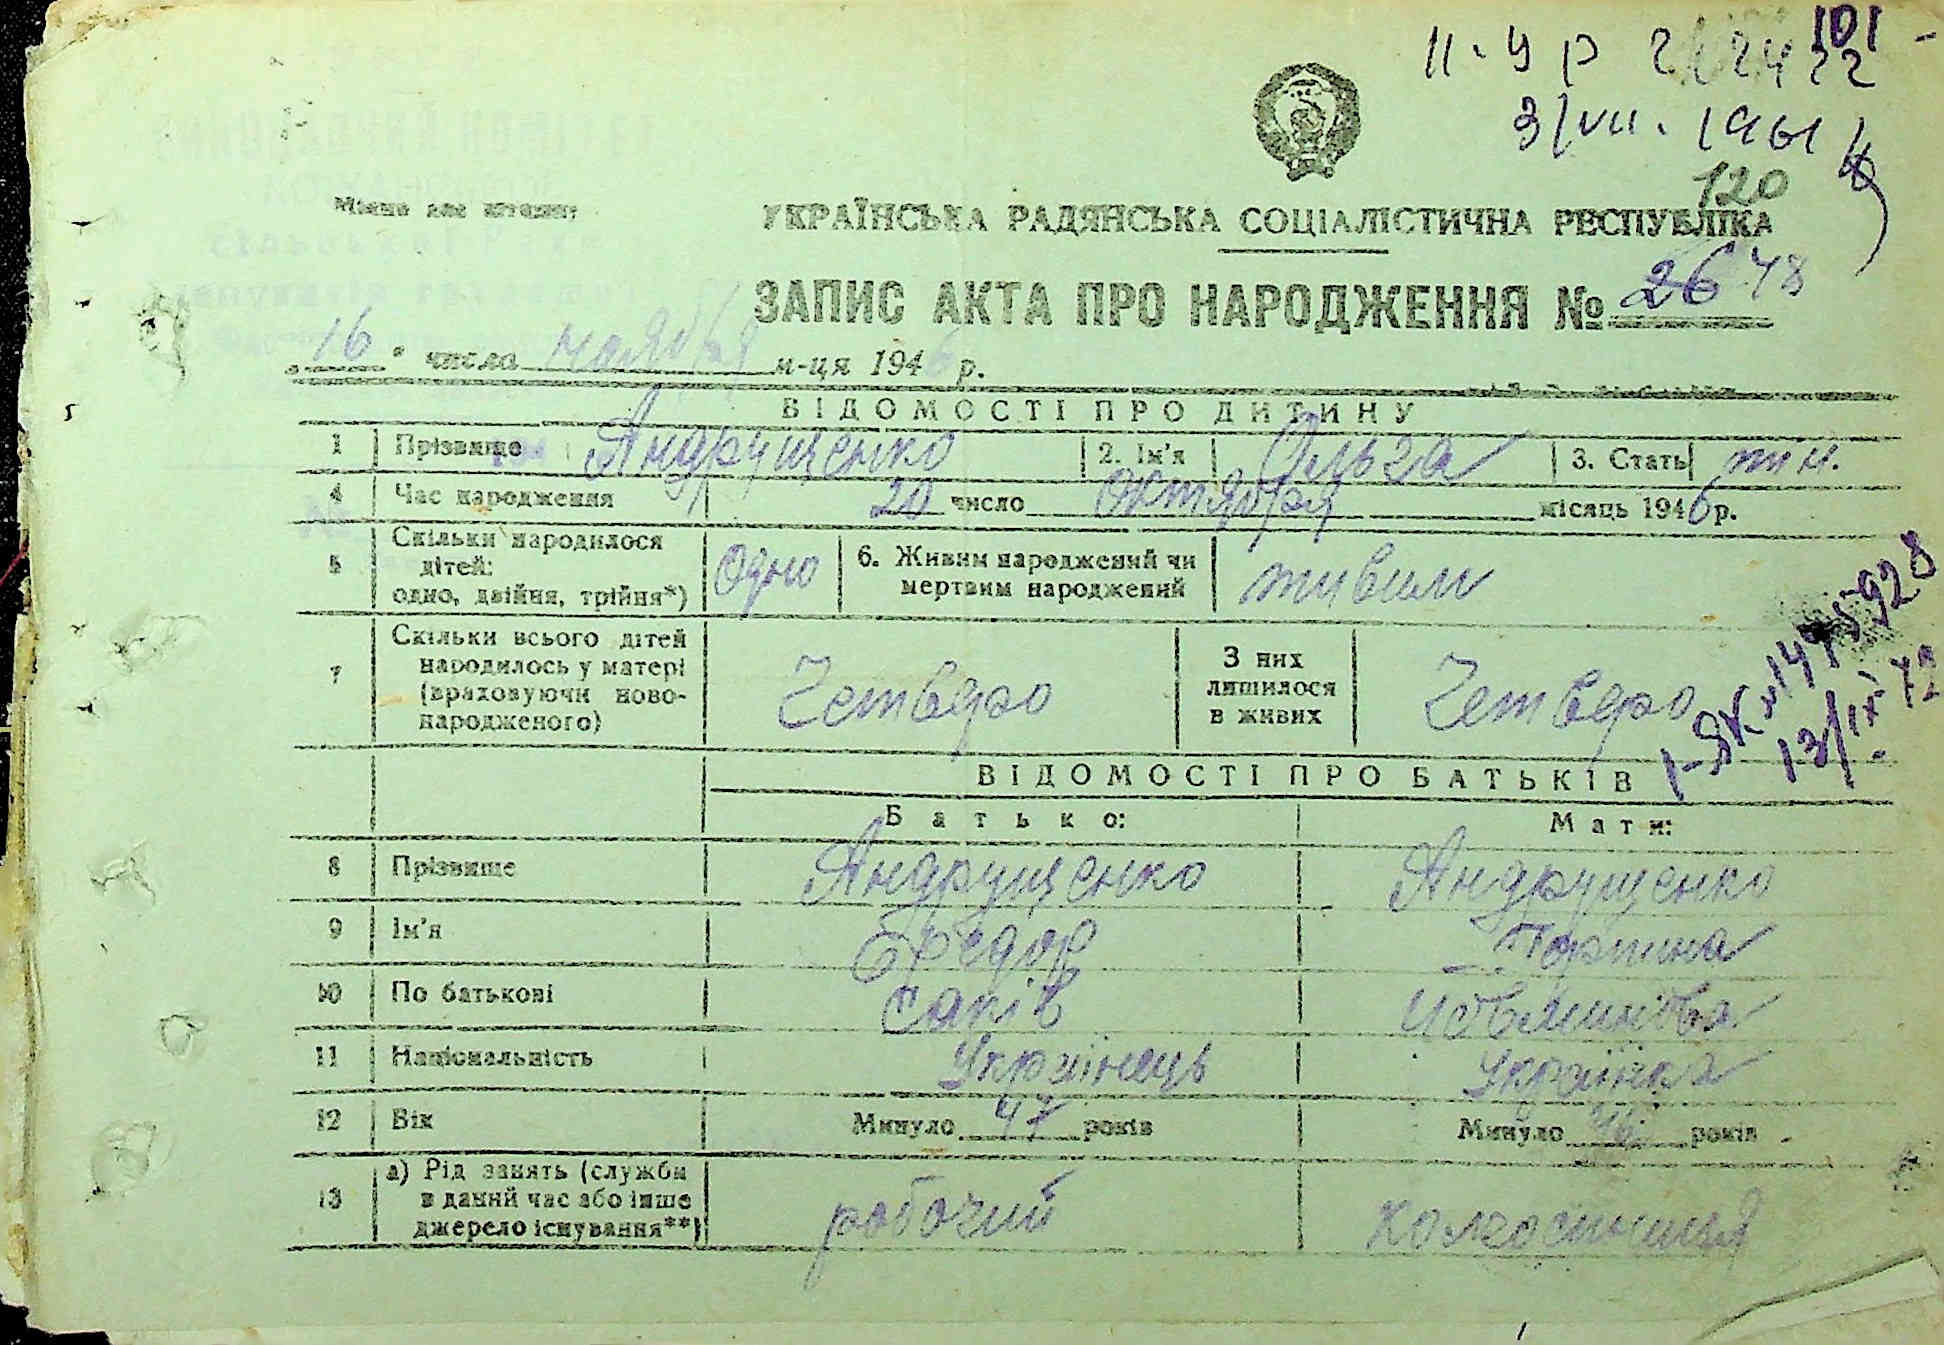 101
II-УР 212422
3/VII. 1961
120
Місце для штампу
УКРАЇНСЬКА РАДЯНСЬКА СОЦІАЛІСТИЧНА РЕСПУБЛІКА
ЗАПИС АКТА ПРО НАРОДЖЕННЯ № 2648
„16“ числа ноября м-ця 1946 р.
ВІДОМОСТІ ПРО ДИТИНУ
1 Прізвище Андрущенко 2. Ім'я Ольга 3. Стать жін.
4 Час народження 20 число Октября місяць 1946 р.
5 Скільки народилося
дітей:
одно, двійня, трійня*) Одно 6. Живим народжений чи
мертвим народжений живим
7 Скільки всього дітей
народилось у матері
(враховуючи ново-
народженого) Четверо З них
лишилося
в живих Четверо
I-ЯК №1475928
13/IX-72
ВІДОМОСТІ ПРО БАТЬКІВ
Батько: Мати:
8 Прізвище Андрущенко Андрущенко
9 Ім'я Федор
10 По батькові
11 Національність Українець Українка
12 Вік Минуло 47 років Минуло років
13 а) Рід занять (служби
в даний час або інше
джерело існування**) робочий колгоспниця